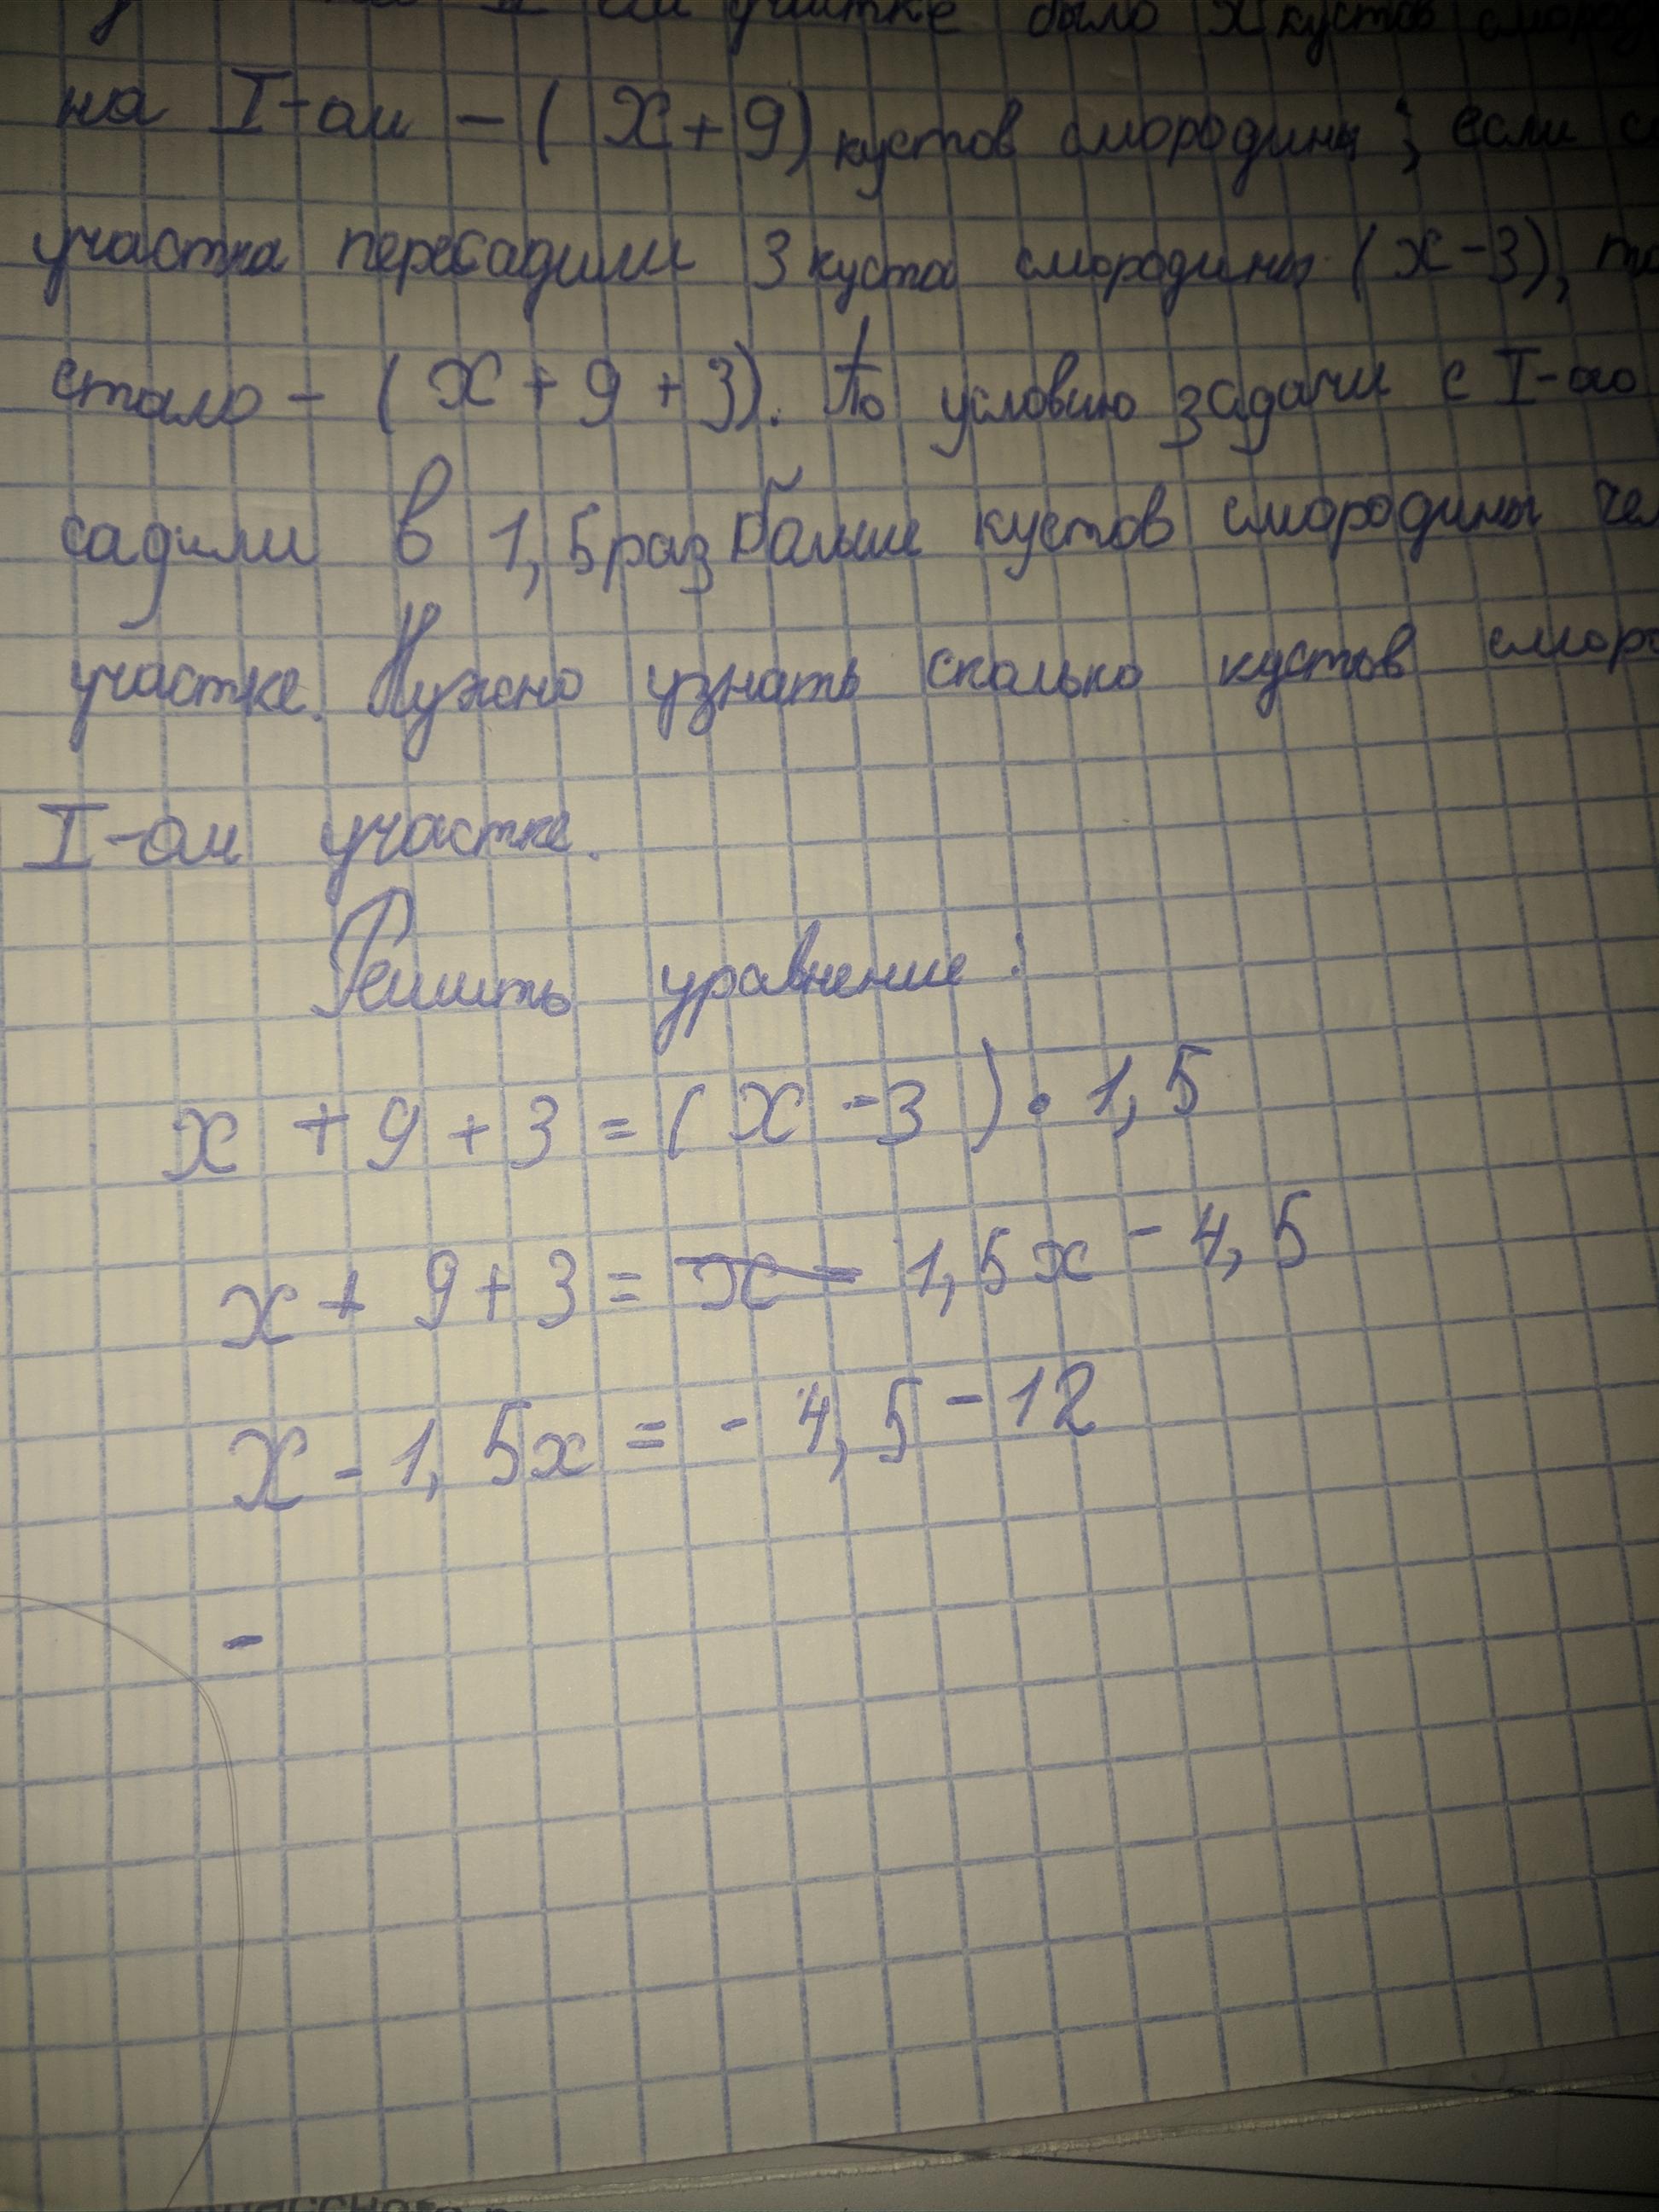 участке было x кустов
на I-ом - (x + 9) кустов смородины; если с
участка пересадили 3 куста смородины (x - 3),
стало - (x + 9 + 3). По условию задачи с I-ого
садили в 1,5 раз больше кустов смородины чем
участке. Нужно узнать сколько кустов
I-ом участке.
Решить уравнение:
x + 9 + 3 = (x - 3) • 1,5
x + 9 + 3 = x - 1,5x - 4,5
x - 1,5x = - 4,5 - 12
-